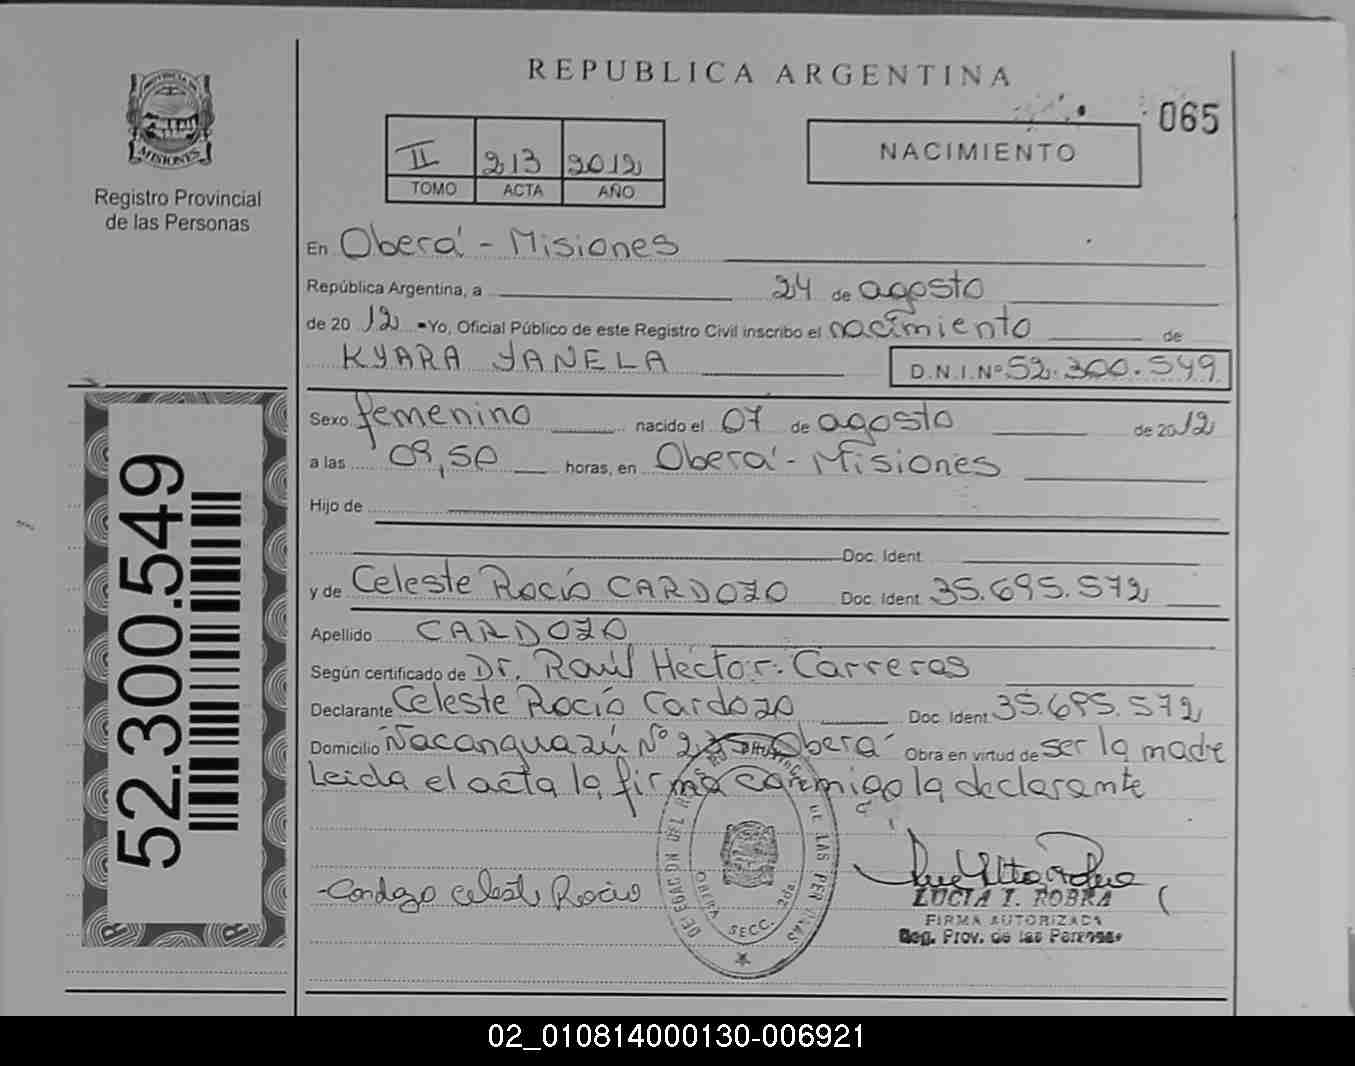 REPUBLICA ARGENTINA
065
PROVINCIA DE
MISIONES
Registro Provincial
de las Personas
II 213 2012
TOMO ACTA AÑO
NACIMIENTO
En Oberá - Misiones
República Argentina, a 24 de agosto
de 20 12 -Yo, Oficial Público de este Registro Civil inscribo el nacimiento de
KYARA YANELA D.N.I.Nº 52.300.549
Sexo femenino nacido el 07 de agosto de 2012
a las 09,50 horas, en Oberá - Misiones
Hijo de
Doc. Ident.
y de Celeste Rocío CARDOZO Doc. Ident. 35.695.572
Apellido CARDOZO
Según certificado de Dr. Raúl Héctor Carreras
Declarante Celeste Rocío Cardozo Doc. Ident. 35.695.572
Domicilio Ñacanguazú Nº Oberá Obra en virtud de ser la madre
Leída el acta la firma conmigo la declarante
52.300.549
-Cardozo Celeste Rocio
OBERA SECC. 2da.
DE LAS PERSONAS
LUCIA I. ROBRA
FIRMA AUTORIZADA
Reg. Prov. de las Personas
02_010814000130-006921